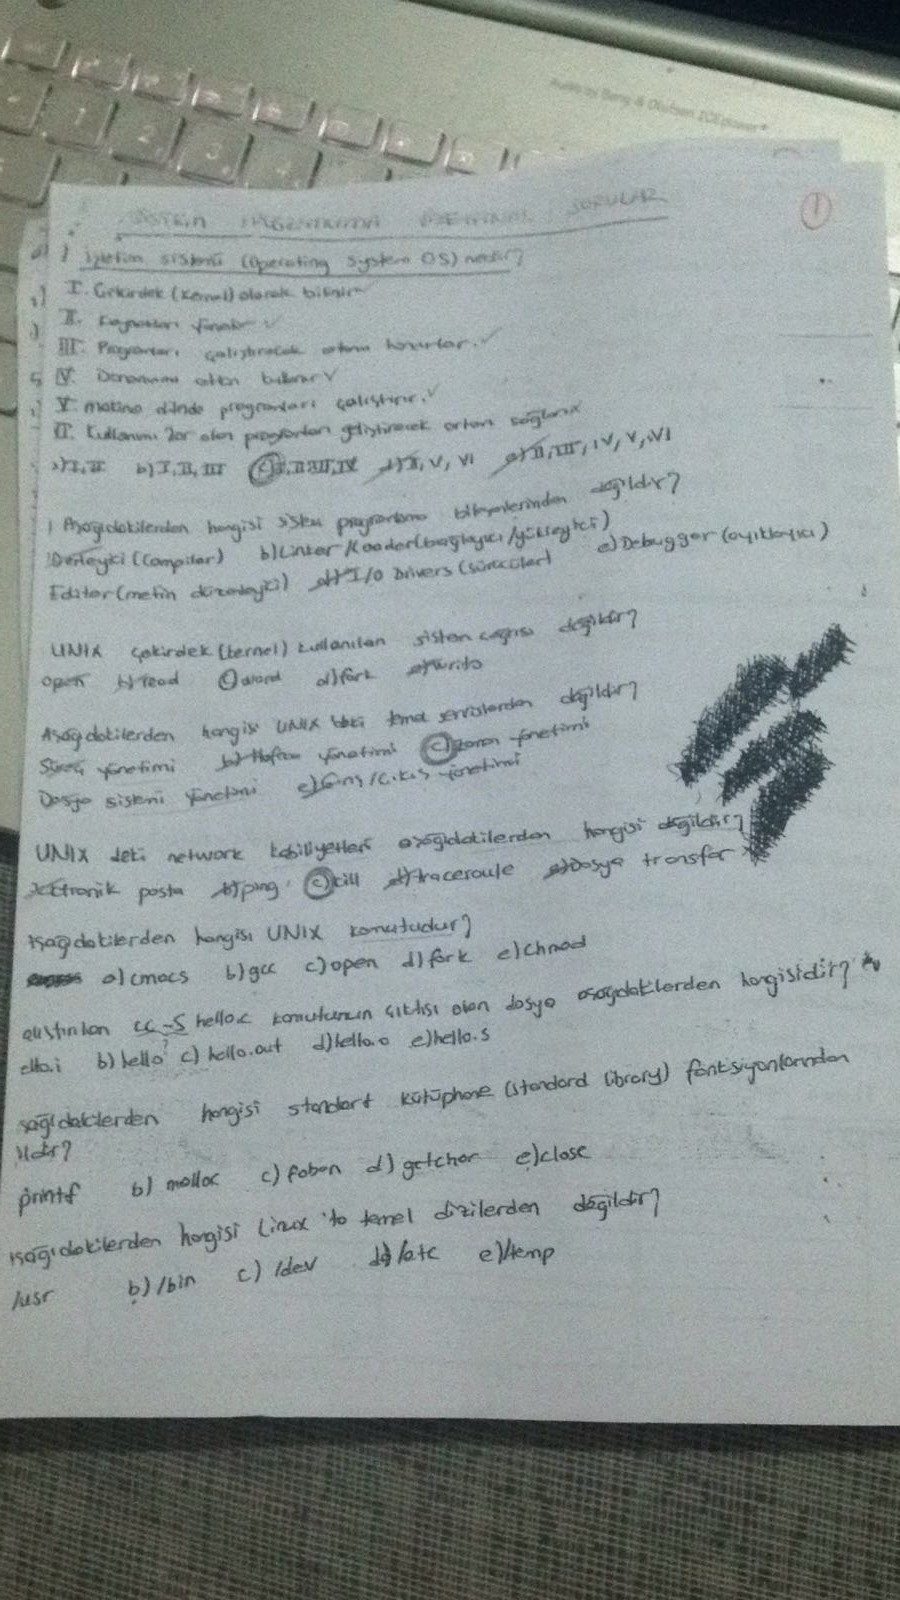 SORULAR
1
İşletim sistemi (Operating System OS) nedir?
I. Çekirdek (Kernel) olarak bilinir
II. Kaynakları yönetir ✓
III. Programları çalıştıracak ortam hazırlar. ✓
IV. Donanımı ✓
V. makina dilinde programları çalıştırır. ✓
VI. Kullanımı zor olan programları geliştirecek ortam sağlanır
a) I, II b) I, II, III c) I, II, III, IV d) I, V, VI e) II, III, IV, V, VI
) Aşağıdakilerden hangisi sistem programlama bileşenlerinden değildir?
Derleyici (Compiler) b) Linker/Loader (bağlayıcı/yükleyici)
Editor (metin düzenleyici) d) I/O Drivers (sürücüler) e) Debugger (ayıklayıcı)
UNIX çekirdek (kernel) kullanılan sistem çağrısı değildir?
open b) read c) word d) fork e) write
Aşağıdakilerden hangisi UNIX deki temel servislerden değildir?
Süreç yönetimi b) Hafıza yönetimi c) zaman yönetimi
Dosya sistemi yönetimi e) Giriş/Çıkış yönetimi
UNIX deki network kabiliyetleri aşağıdakilerden hangisi değildir?
ektronik posta b) ping c) kill d) traceroute e) Dosya transfer
aşağıdakilerden hangisi UNIX komutudur?
a) cmacs b) gcc c) open d) fork e) chmod
alıştırılan cc -S hello.c komutunun çıktısı olan dosya aşağıdakilerden hangisidir?
ello.i b) hello c) hello.out d) hello.o e) hello.s
şağıdakilerden hangisi standart kütüphane (standard library) fonksiyonlarından
ildir?
printf b) malloc c) d) getchar e) close
aşağıdakilerden hangisi Linux 'ta temel dizilerden değildir?
/usr b) /bin c) /dev d) /etc e) /temp